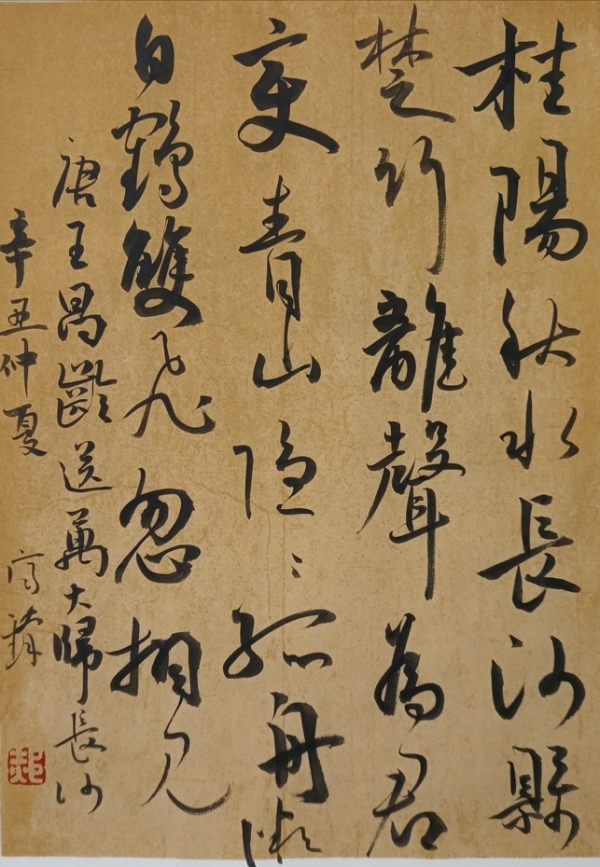 桂陽秋水長沙縣
楚竹離聲為君
变青山隐〻孤舟微
白鶴雙飛忽相見
唐王昌齡送萬大歸長沙
辛丑仲夏 高